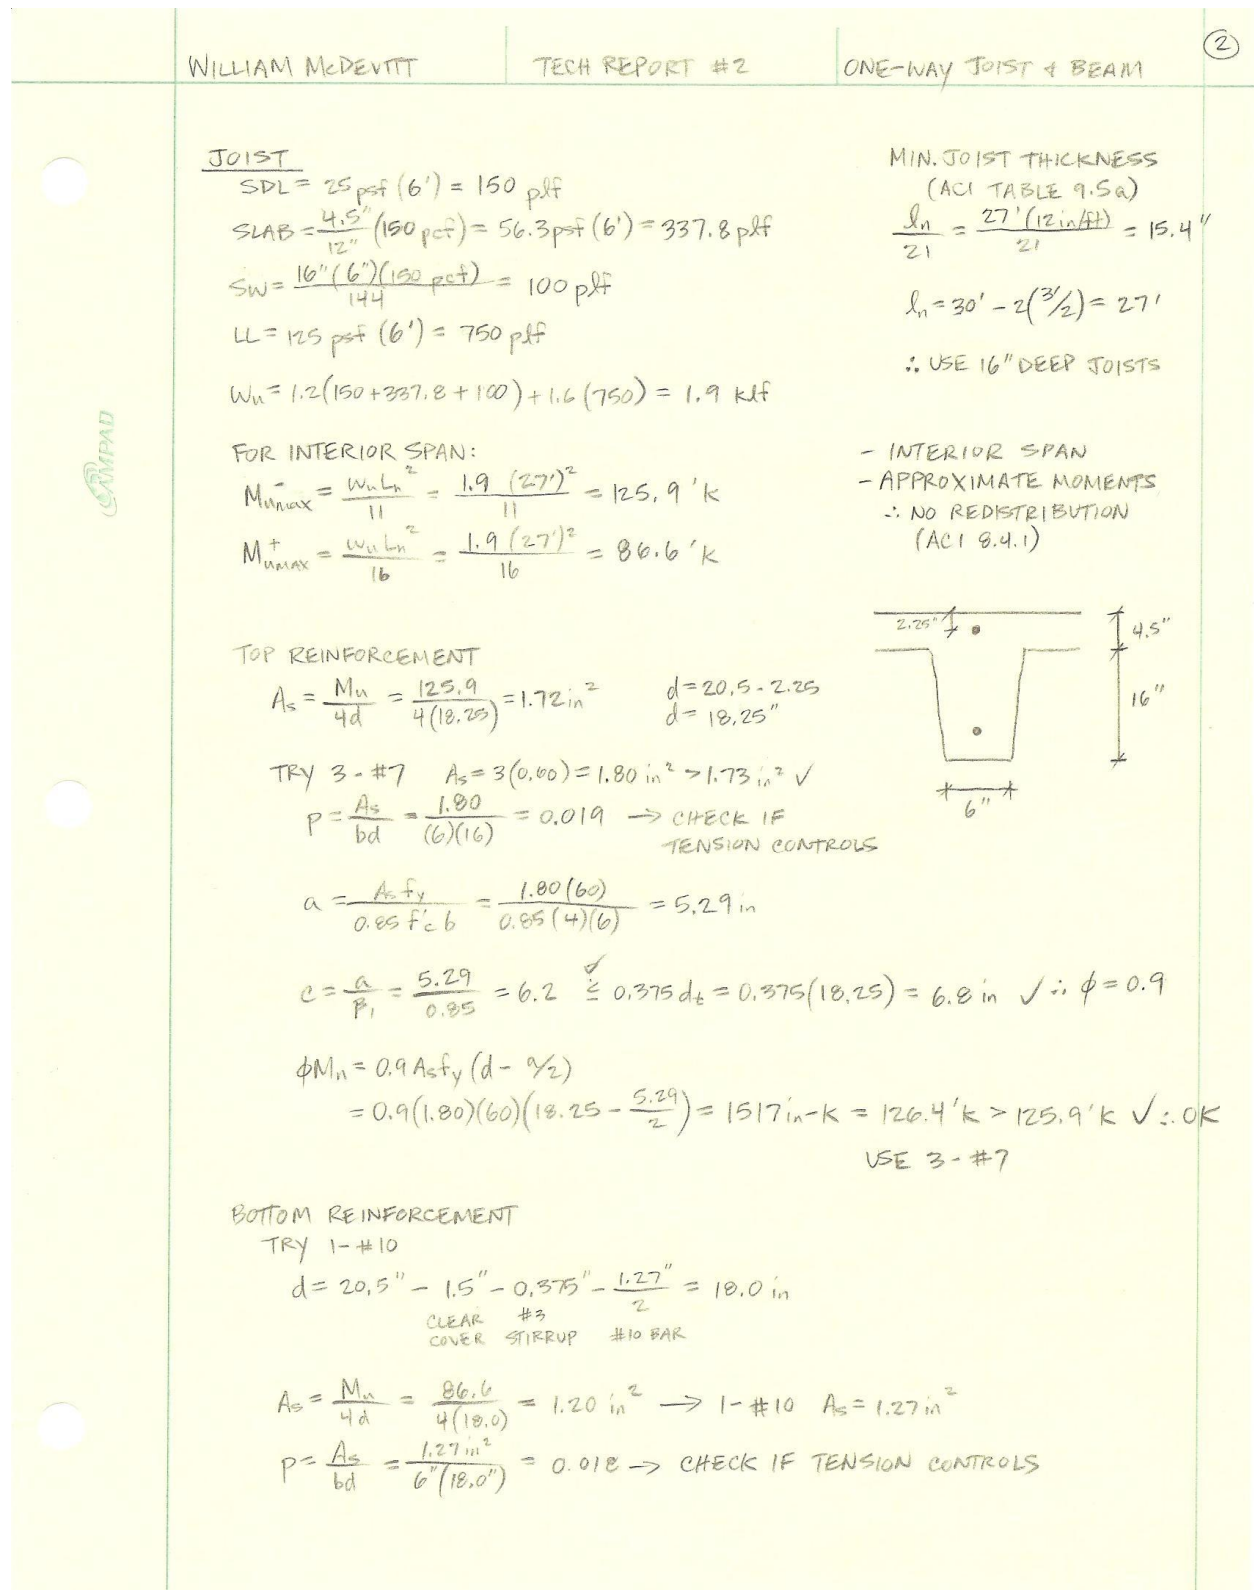 ②
WILLIAM McDEVITT TECH REPORT #2 ONE-WAY JOIST & BEAM
JOIST
SDL = 25 psf (6') = 150 plf
SLAB = 4.5"/12" (150 pcf) = 56.3 psf (6') = 337.8 plf
SW = 16"(6")(150 pcf)/144 = 100 plf
LL = 125 psf (6') = 750 plf
Wu = 1.2(150+337.8+100)+1.6(750) = 1.9 klf
MIN. JOIST THICKNESS
(ACI TABLE 9.5a)
ln/21 = 27'(12in/ft)/21 = 15.4"
ln = 30' - 2(3'/2) = 27'
∴ USE 16" DEEP JOISTS
FOR INTERIOR SPAN:
Mumax⁻ = WuLn²/11 = 1.9 (27')²/11 = 125.9 'k
Mumax⁺ = WuLn²/16 = 1.9 (27')²/16 = 86.6 'k
- INTERIOR SPAN
- APPROXIMATE MOMENTS
∴ NO REDISTRIBUTION
(ACI 8.4.1)
2.25"
4.5"
16"
6"
TOP REINFORCEMENT
As = Mu/4d = 125.9/4(18.25) = 1.72 in²
d = 20.5 - 2.25
d = 18.25"
TRY 3-#7 As = 3(0.60) = 1.80 in² > 1.73 in² ✓
ρ = As/bd = 1.80/(6)(16) = 0.019 → CHECK IF
TENSION CONTROLS
a = Asfy/0.85 f'c b = 1.80(60)/0.85(4)(6) = 5.29 in
c = a/β1 = 5.29/0.85 = 6.2 ≤ ✓ 0.375 dt = 0.375(18.25) = 6.8 in ✓ ∴ φ = 0.9
φMn = 0.9 Asfy (d - a/2)
= 0.9(1.80)(60)(18.25 - 5.29/2) = 1517 in-k = 126.4 'k > 125.9 'k ✓ ∴ OK
USE 3-#7
BOTTOM REINFORCEMENT
TRY 1-#10
d = 20.5" - 1.5" - 0.375" - 1.27"/2 = 18.0 in
CLEAR #3
COVER STIRRUP #10 BAR
As = Mu/4d = 86.6/4(18.0) = 1.20 in² → 1-#10 As = 1.27 in²
ρ = As/bd = 1.27 in²/6"(18.0") = 0.018 → CHECK IF TENSION CONTROLS
AMPAD